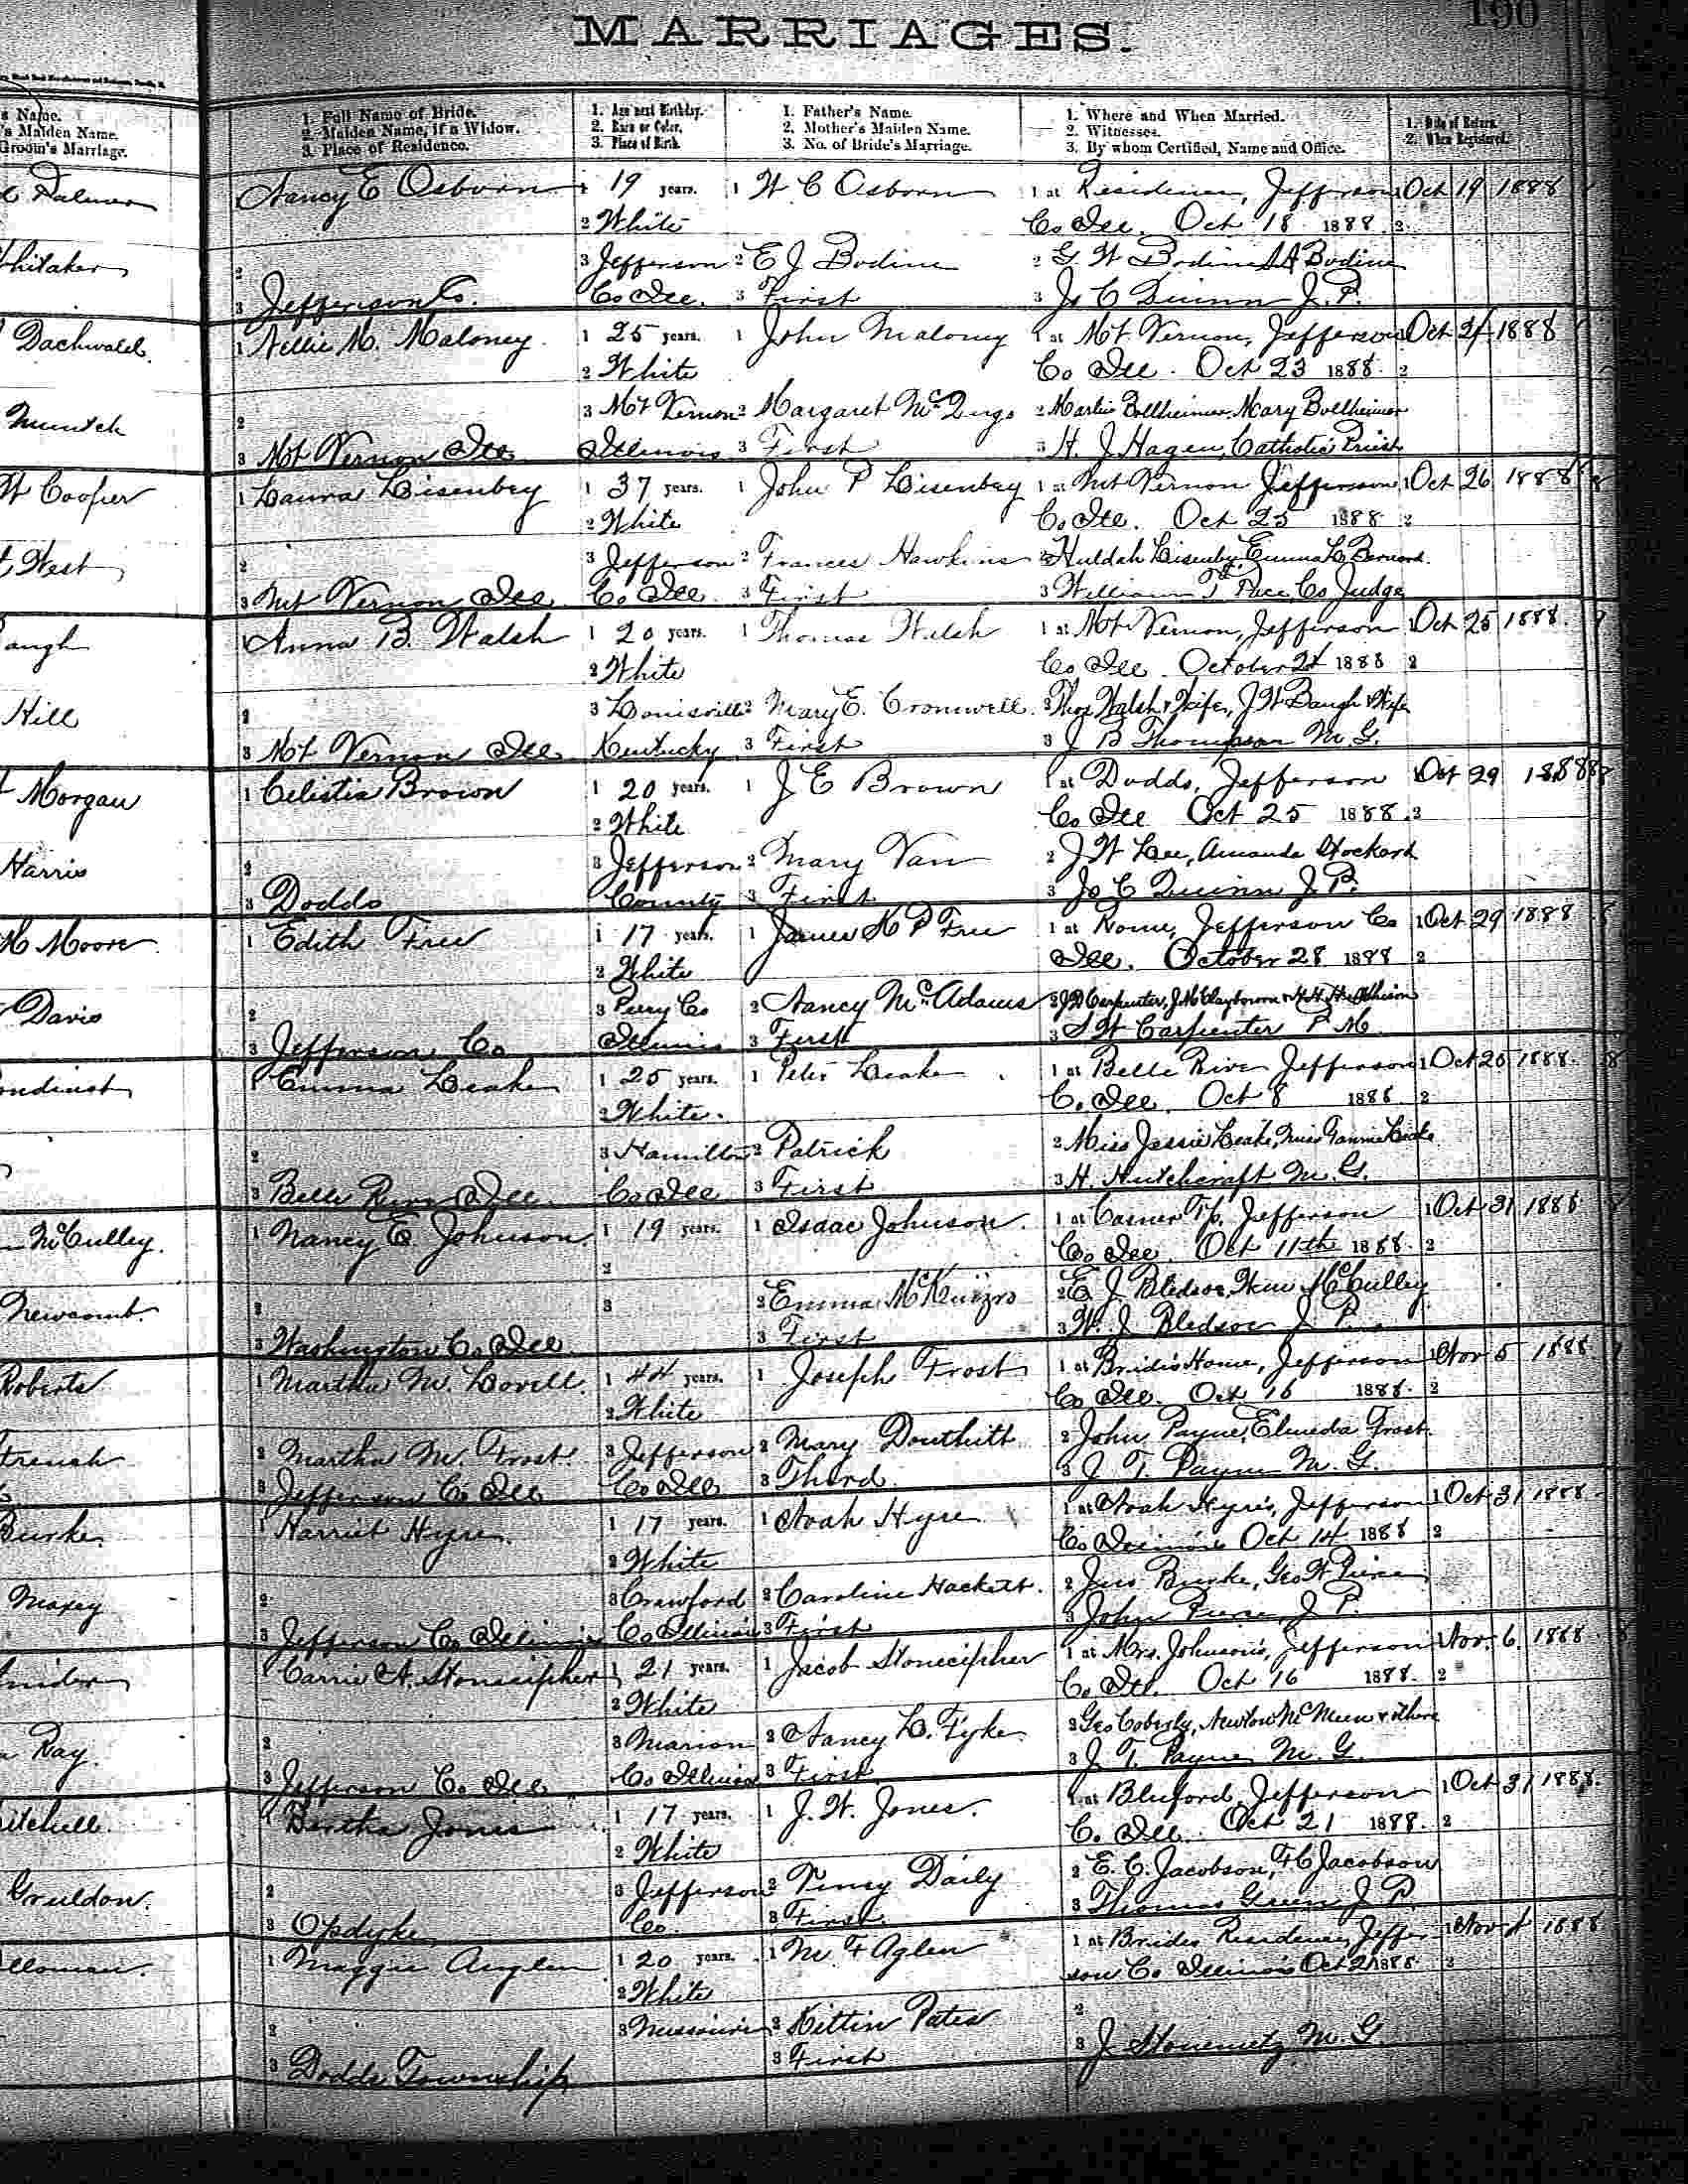 MARRIAGES.
190
s Name.
's Maiden Name.
Groom's Marriage.
1. Full Name of Bride.
2. Maiden Name, if a Widow.
3. Place of Residence.
1. Age next Birthday.
2. Race or Color.
3. Place of Birth.
1. Father's Name.
2. Mother's Maiden Name.
3. No. of Bride's Marriage.
1. Where and When Married.
2. Witnesses.
3. By whom Certified, Name and Office.
1. Date of Return.
2. When Registered.
Nancy E Osborn 1 19 years. 1 W C Osborn 1 at Residence, Jefferson 1 Oct 19 1888
2 White Co Ill. Oct 18 1888. 2
hitaker 2 3 Jefferson 2 E J Bodine 2 G W Bodine Bodine
3 Jefferson Co. Co Ill. 3 First 3 Js C Quinn J.P.
Dachwald. 1 Nellie M. Maloney. 1 25 years. 1 John Maloney 1 at Mt Vernon, Jefferson 1 Oct 24 1888
2 White Co Ill. Oct 23 1888. 2
Muntch 2 3 Mt Vernon 2 Margaret 2 Bollheimer, Mary Bollheimer
3 Mt Vernon Ill Illinois 3 First 3 H. J. Hagen, Catholic Priest
W Cooper 1 Laura Lisenbey 1 37 years. 1 John P Lisenbey 1 at Mt Vernon Jefferson 1 Oct 26 1888
2 White Co Ill. Oct 25 1888 2
West 2 3 Jefferson 2 Frances Hawkins 2 Huldah Lisenbey, Emma L Bernard.
3 Mt Vernon Ill Co Ill. 3 First 3 William T Pace, Co Judge
augh 1 Anna B. Walsh 1 20 years. 1 Thomas Walsh 1 at Mt Vernon, Jefferson 1 Oct 25 1888.
2 White Co Ill. October 24 1888 2
Hill 2 3 Louisville 2 Mary E. Cromwell. 2 Thos Walsh & Wife, J W Baugh & Wife
3 Mt Vernon Ill Kentucky 3 First 3 J B Thompson M. G.
Morgan 1 Celistia Brown 1 20 years. 1 J E Brown 1 at Dodds, Jefferson 1 Oct 29 1888
2 White Co Ill Oct 25 1888. 2
Harris 2 3 Jefferson 2 Mary Van 2 J W Lee, Amanda Stockard
3 Dodds County 3 First 3 Js C Quinn J P.
Moore 1 Edith Free 1 17 years. 1 James K P Free 1 at Rome, Jefferson Co 1 Oct 29 1888
2 White Ill. October 28 1888 2
Davis 2 3 Perry Co 2 Nancy McAdams 2 J D Carpenter, J M Clayborne
3 Jefferson Co Illinois 3 First 3 S W Carpenter P M
ondinst 1 Emma Leake 1 25 years. 1 Peter Leake 1 at Belle River Jefferson 1 Oct 25 1888.
2 White. Co. Ill. Oct 8 1888. 2
2 3 Hamilton 2 Patrick 2 Miss Jessie Leake, Miss Fannie Leake
3 Belle River Ill. Co Ill 3 First 3 H. Hutchcraft M. G.
McCulley. 1 Nancy E. Johnson. 1 19 years. 1 Isaac Johnson. 1 at Casner Tp. Jefferson 1 Oct 31 1888
2 Co Ill. Oct 11th 1888. 2
Newcomb. 2 3 2 Emma 2 E J Bledsoe, Wm McCulley
3 Washington Co Ill 3 First 3 W. J. Bledsoe J P.
Roberts 1 Martha M. Lovell. 1 44 years. 1 Joseph Frost 1 at Bride's Home, Jefferson 1 Nov 5 1888
2 White Co Ill. Oct 15 1888. 2
French 2 Martha M. Frost. 3 Jefferson 2 Mary Douthitt 2 John Payne, Elmeda Frost.
3 Jefferson Co Ill Co Ill 3 Third 3 J. T. Payne M. G.
Burke. 1 Harriet Hyre. 1 17 years. 1 Noah Hyre 1 at Noah Hyre's, Jefferson 1 Oct 31 1888.
2 White Co Illinois Oct 14 1888 2
Maxey 2 3 Crawford 2 Caroline Hackett. 2 Jno Burke, Geo W Pierce
3 Jefferson Co Illinois Co Illinois 3 First 3 John Pierce, J P.
nider 1 Carrie A. Stonecipher 1 21 years. 1 Jacob Stonecipher 1 at Mrs. Johnson's, Jefferson 1 Nov. 6. 1888
2 White Co. Ill. Oct 16 1888. 2
Ray. 2 3 Marion 2 Nancy L. Fyke 2 Geo Coberly, Newton McMeen & others
3 Jefferson Co Ill Co Illinois 3 First 3 J. T. Payne M. G.
itchell. 1 Bertha Jones 1 17 years. 1 J. W. Jones. 1 at Bluford, Jefferson 1 Oct 31 1888.
2 White Co. Ill. Oct 21 1888. 2
Gruldon. 2 3 Jefferson 2 Viney Daily 2 E. C. Jacobson, F C Jacobson
3 Opdyke Co. 3 First. 3 Thomas Green J. P.
lloman. 1 Maggie Anglen 1 20 years. 1 M F Aglen 1 at Brides Residence, Jeffer 1 Nov 1 1888
2 White son Co Illinois Oct 21 1888. 2
2 3 Missouri 2 Kittin Pates 2
3 Dodds Township 3 First 3 J Stonemetz M. G.